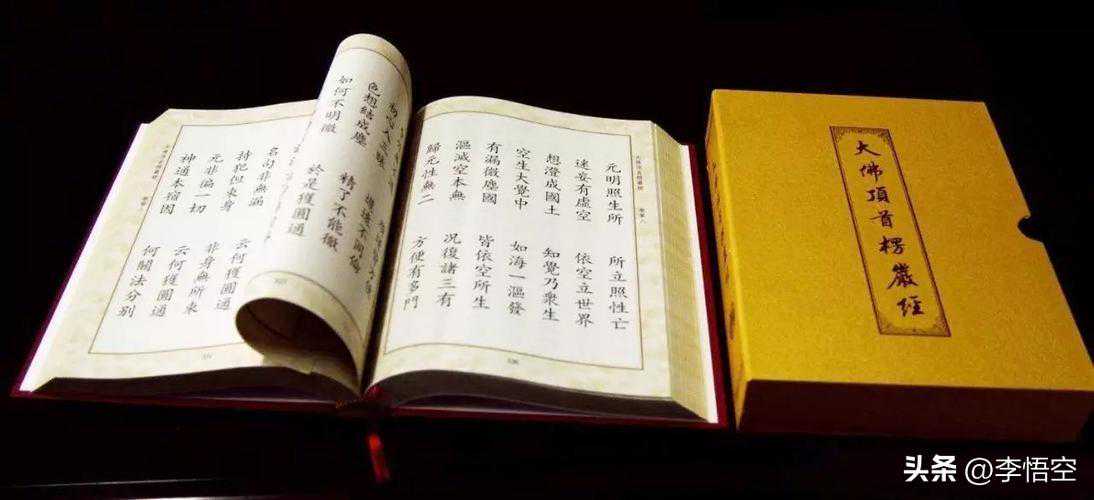 元明照生所 所立照性亡
迷妄有虛空 依空立世界
想澄成國土 知覺乃衆生
空生大覺中 如海一漚發
有漏微塵國 皆依空所生
漚滅空本無 況復諸三有
歸元性無二 方便有多門
色想結成塵 精了不能徹
如何不明徹 於是獲圓通
名句非無漏 云何獲圓通
持犯但束身 非身無所束
元非徧一切 云何獲圓通
神通本宿因 何關法分別
大佛頂首楞嚴經
头条 @李悟空